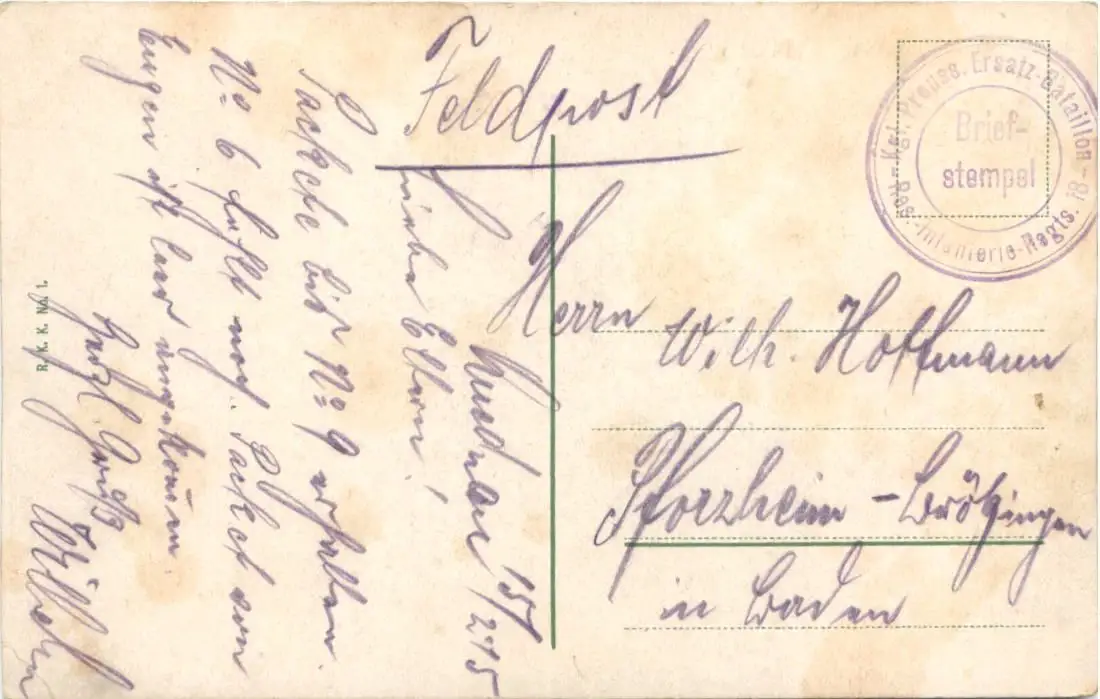 Feldpost
Kgl. Preuss. Ersatz-Bataillon -
Res.-Infanterie-Regts. 18
Brief-
stempel
Herrn
Wilh. Hoffmann
Pforzheim-Brötzingen
in Baden
15/2 15
Liebe Eltern!
Packete bis No 9 erhalten.
No 6 fehlt noch. Packet von
Eugen ist leer angekom̅en
Herzl. Gruß
Wilhelm
R. K. K. No. 1.